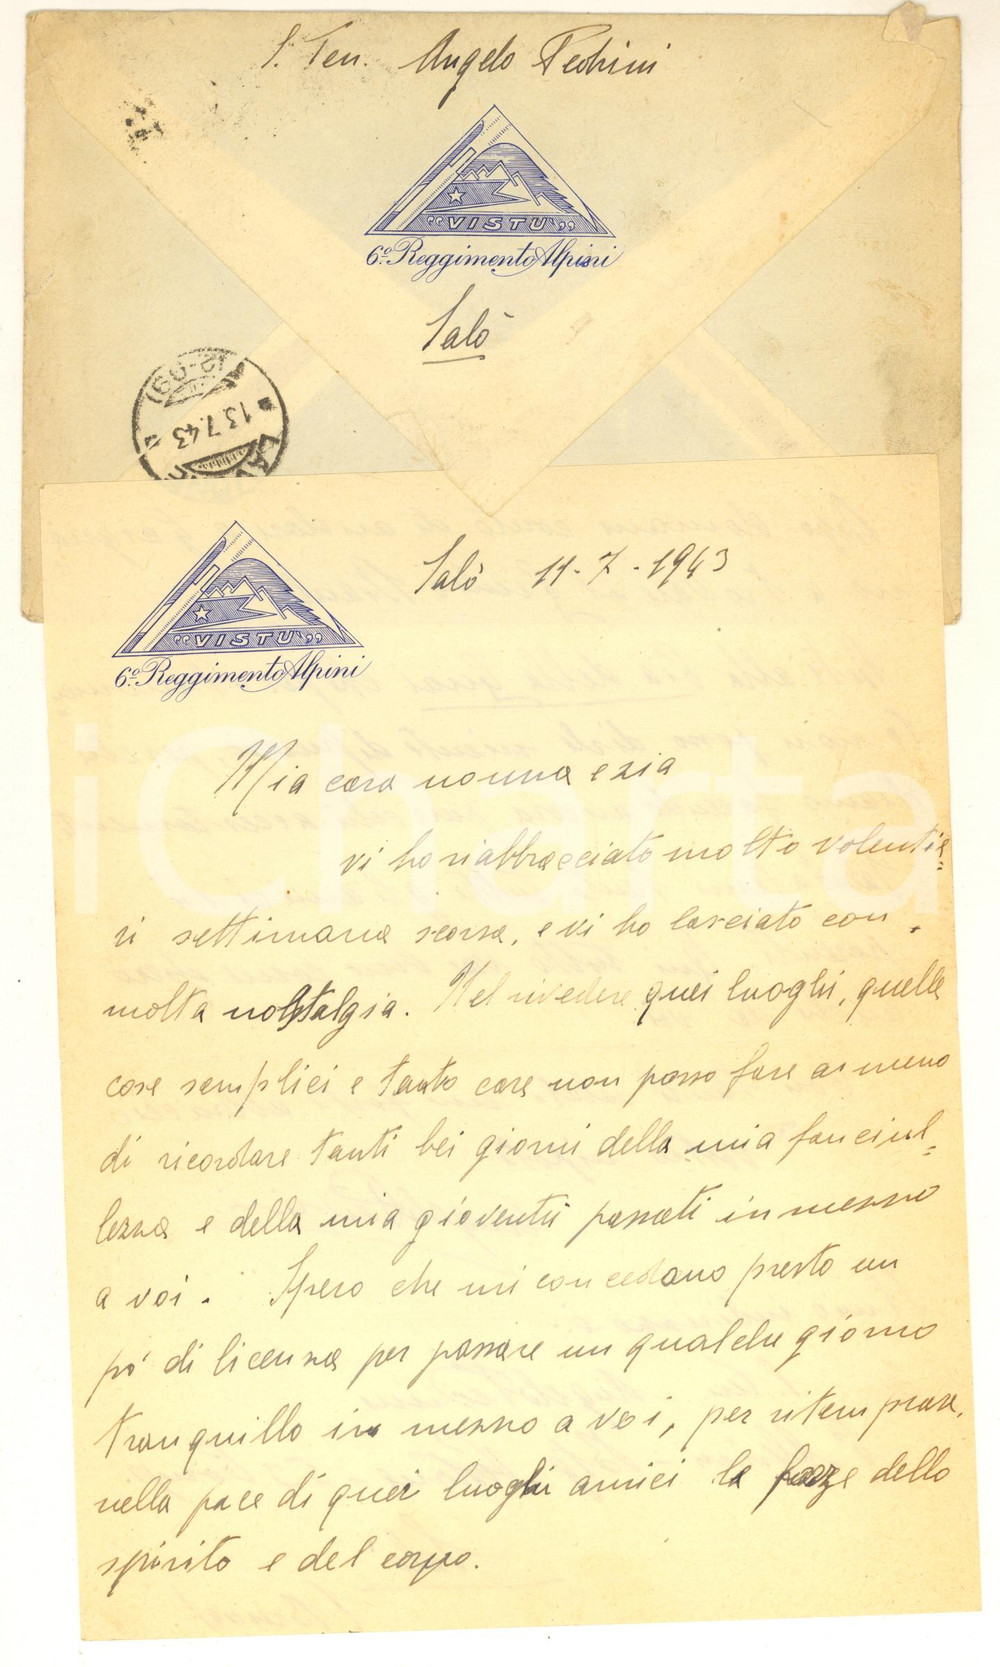 S. Ten. Angelo
"VISTÙ"
6º Reggimento Alpini
Salò
13.7.43
"VISTÙ"
6º Reggimento Alpini
Salò 11-7-1943
Mia cara nonna e zia
vi ho riabbracciato molto volentie=
ri settimana scorsa, e vi ho lasciato con
molta nostalgia. Nel rivedere quei luoghi, quelle
cose semplici e tanto care non posso fare a meno
di ricordare tanti bei giorni della mia fanciul=
lezza e della mia gioventù passati in mezzo
a voi. Spero che mi concedano presto un
pò di licenza per passare un qualche giorno
tranquillo in mezzo a voi, per ritemprare,
nella pace di quei luoghi amici le forze dello
spirito e del corpo.
iCharta